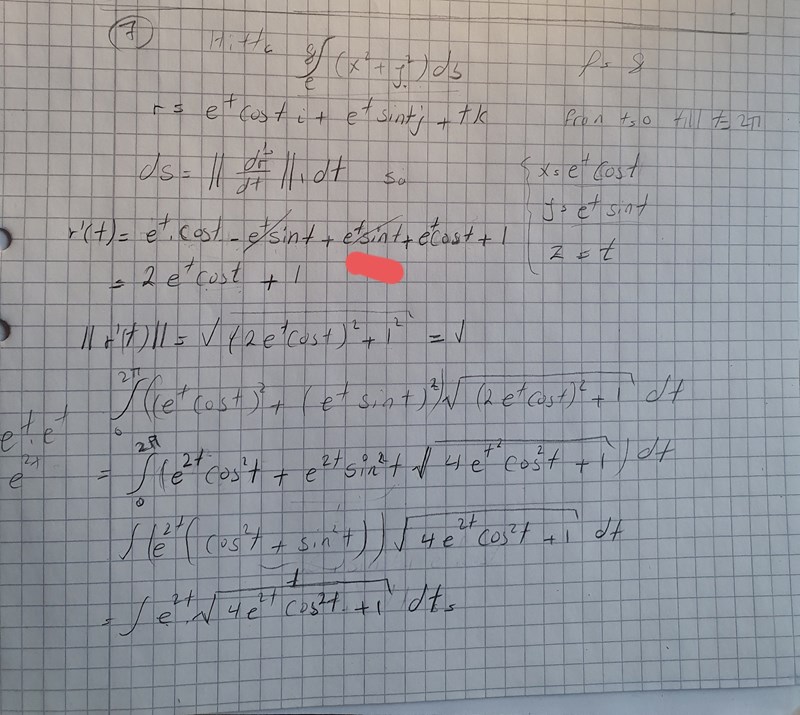 7 Hitta ∫e (x² + y²) ds P = 8
r = e^t cost i + e^t sint j + tk från t=0 till t=2π
ds = || dr/dt || . dt so { x = e^t cost
y = e^t sint
r'(t) = e^t . cost - e^t sint + e^t sint + e^t cost + 1 z = t
= 2 e^t cost + 1
|| r'(t) || = √(2e^t cost)² + 1² = √
2π
∫ ((e^t cost)² + (e^t sint)²) √(2e^t cost)² + 1 dt
0
e^t . e^t
e^2t = ∫ 0 2π (e^2t cos²t + e^2t sin²t √4e^t² cos²t + 1) dt
∫ (e^2t (cos²t + sin²t)) √4e^2t cos²t + 1 dt
1
= ∫ e^2t . √4e^2t cos²t + 1 dt =